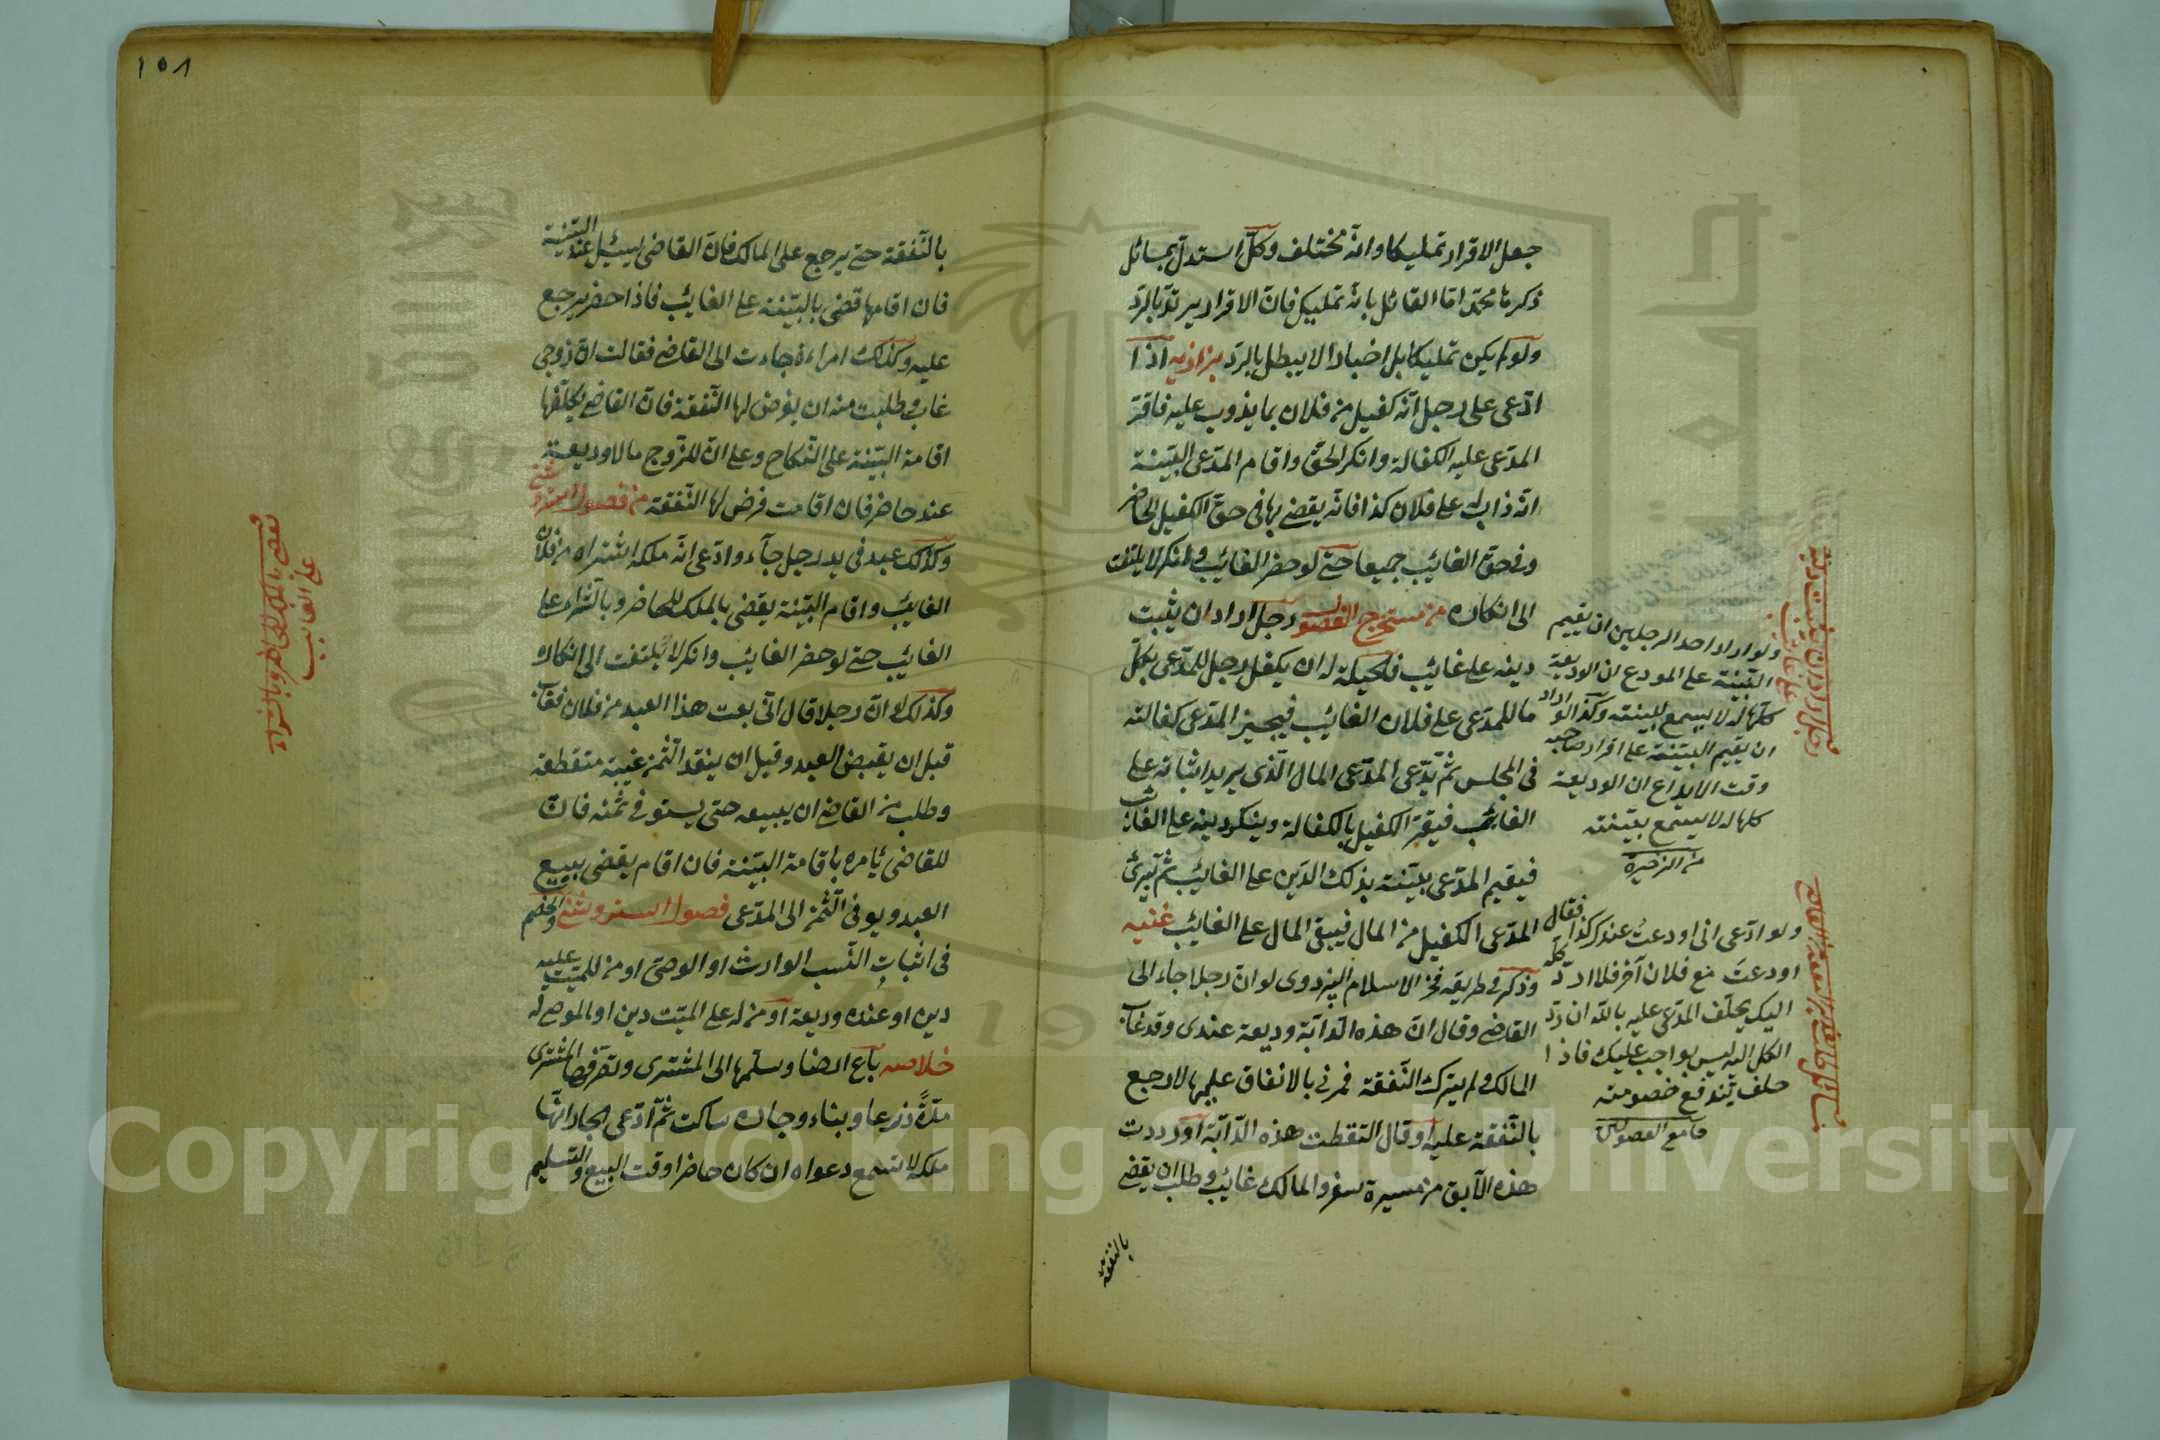 جعل الاقرار تمليكا وانه مختلف وكل استدل بمسائل
ذكرها محمد اما القائل بانه تمليك فان الاقرار يرتد بالرد
ولو لم يكن تمليكا بل اخبارا لا يبطل بالرد بزازيه اذا
ادعى على رجل انه كفيل من فلان بما يذوب عليه فاقر
المدعى عليه الكفالة وانكر الحق واقام المدعى البينة
انه ذاب له على فلان كذا فانه يقضى بها فى حق الكفيل الحاضر
وفى حق الغائب جميعا حتى لو حضر الغائب وانكر لا يلتفت
الى انكاره من مستخرج الفصول رجل اراد ان يثبت
دينه على غائب فالحيلة له ان يكفل رجل للمدعى بكل
ما للمدعى على فلان الغائب فيجيز المدعى كفالته
فى المجلس ثم يدعى المدعى المال الذى يريد اثباته على
الغائب فيقر الكفيل بالكفالة وينكر دينه على الغائب
فيقيم المدعى بينته بذلك الدين على الغائب ثم يبرئ
المدعى الكفيل من المال فيبقى المال على الغائب غنيه
وذكر فى طريقه فخر الاسلام البزدوى لو ان رجلا جاء الى
القاضى وقال ان هذه الدابة وديعة عندى وقد غاب
المالك ولم يترك النفقة فمرنى بالانفاق عليها لارجع
بالنفقة عليه او قال التقطت هذه الدابة او رددت
هذه الآبق من مسيرة سفر والمالك غائب وطلب ان يقضى
بالنفقة
رجل اراد ان يثبت دينه
على غائب
ولو اراد احد الرجلين ان يقيم
البينة على المودع ان الوديعة
كلها له لا يسمع البينة وكذا لو اراد
ان يقيم البينة على اقرار صاحبه
وقت الايداع ان الوديعة
كلها له لا يسمع بينته
من الذخيرة
ولو ادعى انى اودعت عندك كذا فقال
اودعت مع فلان آخر فلا ارد كله
اليك يحلف المدعى عليه بالله ان رد
الكل اليه ليس بواجب عليك فاذا
حلف تندفع خصومته
جامع الفصولين
١٥٨
بالنفقة حتى يرجع على المالك فان القاضى يسئل عنه البينة
فان اقامها قضى بالبينة على الغائب فاذا حضر يرجع
عليه وكذلك امراءة جاءت الى القاضى فقالت ان زوجى
غاب وطلبت منه ان يفرض لها النفقة فان القاضى يكلفها
اقامة البينة على النكاح وعلى ان للزوج مالا وديعة
عند حاضر فان اقامت فرض لها النفقة من فصول استروشنى
وكذلك عبد فى يد رجل جآء وادعى انه ملكه اشتراه من فلان
الغائب واقام البينة يقضى بالملك للحاضر وبالشراء على
الغائب حتى لو حضر الغائب وانكر لا يلتفت الى انكاره
وكذلك لو ان رجلا قال انى بعت هذا العبد من فلان فغاب
قبل ان يقبض العبد وقبل ان ينقد الثمن غيبة منقطعة
وطلب من القاضى ان يبيعه حتى يستوفى ثمنه فان
للقاضى يامره باقامة البينة فان اقام يقضى ببيع
العبد ويوفى الثمن الى المدعى فصول استروشنى والخصم
فى اثبات النسب الوارث او الوصى او من للميت عليه
دين او عنده وديعة او من له على الميت دين او الموصى له
خلاصه باع ارضا وسلمها الى المشترى وتصرف المشترى
مدة زرعا وبناء وجاره ساكت ثم ادعى الجار انها
ملكه لا تسمع دعواه ان كان حاضرا وقت البيع والتسليم
يقضى بالملك للحاضر وبالشراء
على الغائب
Copyright © King Saud University